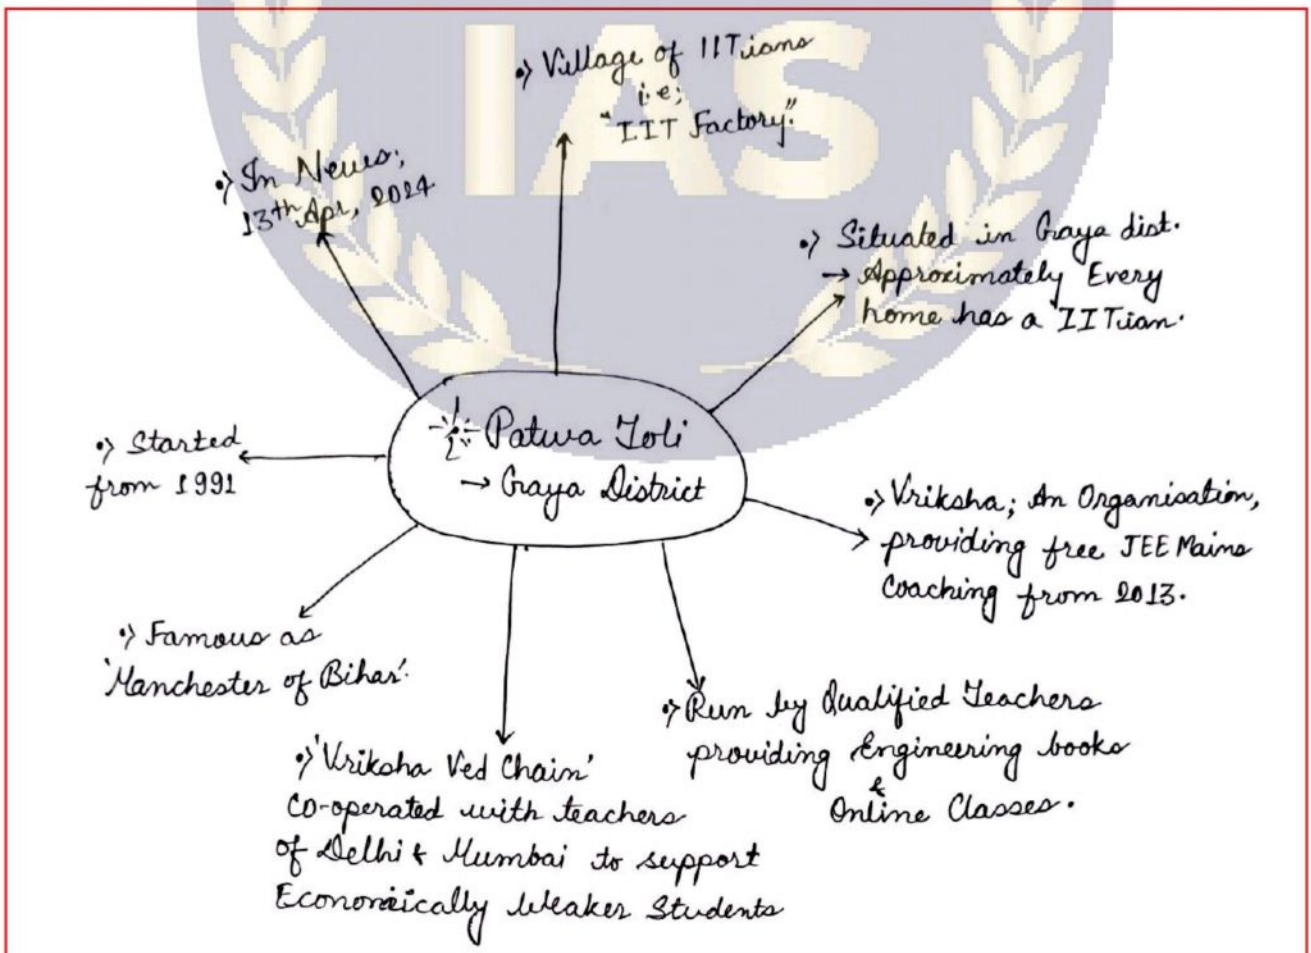 IAS
•) Village of IITians
i.e;
"IIT Factory."
•) In News;
13th Apr, 2024
•) Situated in Gaya dist.
→ Approximately Every
home has a IITian.
Patwa Toli
→ Gaya District
•) Started
from 1991
•) Vriksha; An Organisation,
providing free JEE Mains
Coaching from 2013.
•) Famous as
'Manchester of Bihar'.
•) Run by Qualified Teachers
providing Engineering books
&
Online Classes.
•) 'Vriksha Ved Chain'
Co-operated with teachers
of Delhi & Mumbai to support
Economically Weaker Students